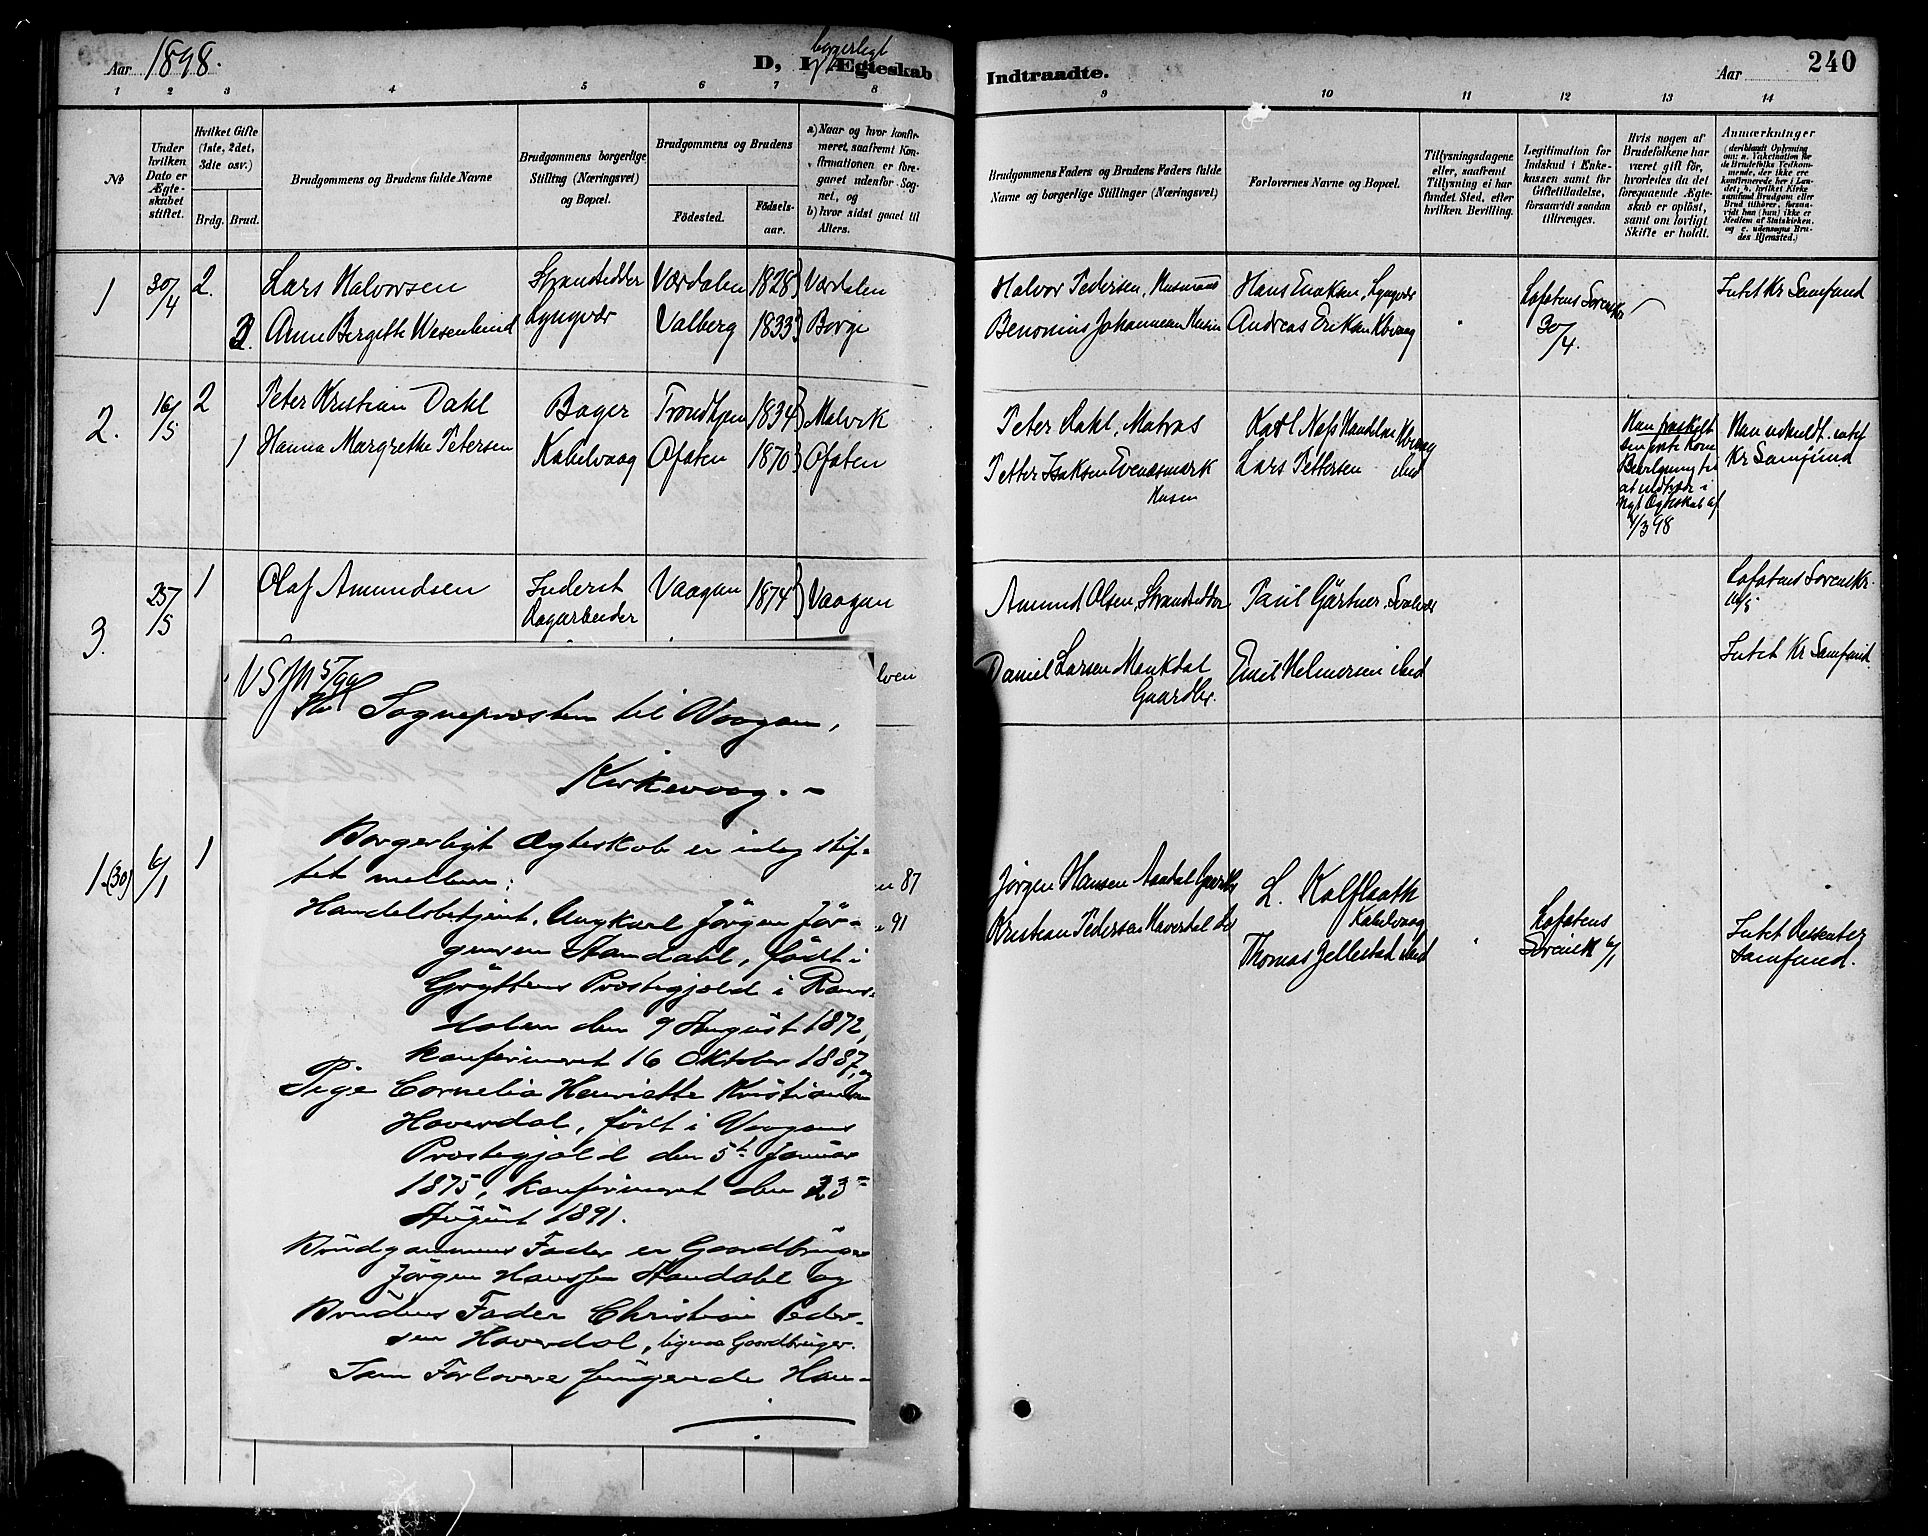 Aar 1898.
borgerligt
D, I Ægteskab
Indtraadte.
Aar
240
1 2 3 4 5 6 7 8 9 10 11 12 13 14
No
Under hvilken Dato er Ægteskabet stiftet.
Hvilket Gifte (1ste, 2det, 3die osv.)
Brdg. Brud.
Brudgommens og Brudens fulde Navne
Brudgommens borgerlige Stilling (Næringsvei) og Bopæl.
Brudgommens og Brudens
Födested. Födselsaar.
a) Naar og hvor konfirmeret, saafremt Konfirmationen er foregaaet udenfor Sognet, og
b) hvor sidst gaaet til Alters.
Brudgommens Faders og Brudens Faders fulde Navne og borgerlige Stillinger (Næringsvei)
Forlovernes Navne og Bopæl.
Tillysningsdagene eller, saafremt Tillysning ei har fundet Sted, efter hvilken Bevilling.
Legitimation for Indskud i Enkekassen samt for Giftetilladelse, forsaavidt saadan tiltrænges.
Hvis nogen af Brudefolkene har været gift för, hvorledes da det foregaaende Ægteskab er oplöst, samt om lovligt Skifte er holdt.
Anmærkninger (deriblandt Oplysning om: a. Vakcination for de Brudefolks Vedkommende, der ikke ere konfirmerede her i Landet; b. hvilket Kirkesamfund Brudgom eller Brud tilhører, forsaavidt han (hun) ikke er Medlem af Statskirken, og c. udensogns Brudes Hjemsted.)
1 30/4 2. Lars Halvorsen Strandsidder Værdalen 1828 Værdalen Halvor Pedersen, Husmand Hans Enoksen, Lyngvær Lofotens Sorenskr Intet Kr Samfund
Anne Bergitte Wesenlund Lyngvær Valberg 1833 Borge Benonius Johannesen Andreas Eriksen Kbvaag 30/4.
2. 16/5 2 Peter Kristian Dahl Bager Trondhjem 1834 Malvik Peter Dahl, Matros
1 Hanna Margrethe Petersen Kabelvaag Ofoten 1870 Ofoten Petter Isaksen Evenæsmark Lars Pettersen ibd
Husm
Kr Samfund
Nyt Ægteskab af
1/3 98
3. 25/5 1 Olaf Amundsen Inderst Vaagan 1874 Vaagan Amund Olsen, Strandsidder Paul Gärtner. Svolvær Lofotens Sorenskr.
Dagarbeider
Daniel Larsen Emil Helmersen ibid Intet Kr Samfund
Gaardbr.
1.(30) 6/1 1 Jørgen Hansen
Kabelvaag
Kristian Pedersen Haverdal Thomas Jellestad ibid Lofotens Sorensk 6/1 Intet Dissenter Samfund.
87
91
Sognepræsten til Vaagan,
Kirkevaag. -
Borgerligt Ægteskab er idag stif-
tet mellem:
Handelsbetjent, Ungkarl Jörgen Jör-
gensen Standahl, födt i
Gryttens Præstegjæld i Roms-
dalen den 9 August 1872,
konfirmeret 16 Oktober 1887, og
Pige Cornelia Henriette Kristiansen
Haverdal, födt i Vaagans
Præstegjæld den 5te Januar
1875, konfirmeret den 23-
August 1891.
Brudgommens Fader er Gaardbruger
Jörgen Hanssen Standahl og
Brudens Fader Christian Peder-
sen Haverdal, ligesaa Gaardbruger.
Som Forlovere fungerede Han-